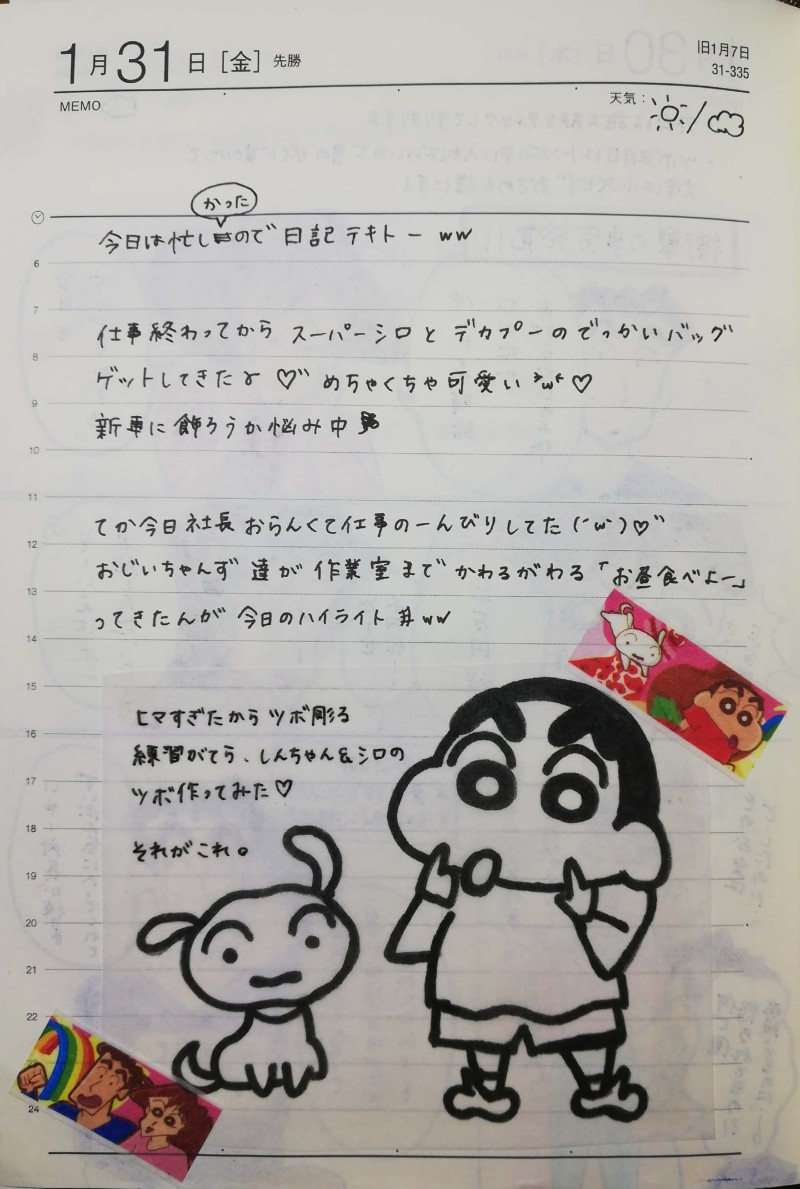 1月31日[金] 先勝
旧1月7日
31-335
MEMO
天気:
かった
今日は忙しので 日記 テキトー ww
6
7
仕事終わってから スーパーシロ と デカプーのでっかいバッグ
8
ゲットしてきたよ ♡" めちゃくちゃ可愛い ♡
9
新車に飾ろうか悩み中
10
11
てか今日社長おらんくて仕事のーんびりしてた (´w`)♡"
12
おじいちゃんず達が作業室までかわるがわる「お昼食べよー」
13
ってきたんが今日のハイライト井ww
14
15
ヒマすぎたからツボ彫る
16
練習がてら、しんちゃん&シロの
17
ツボ作ってみた♡
18
それがこれ。
19
20
21
22
24